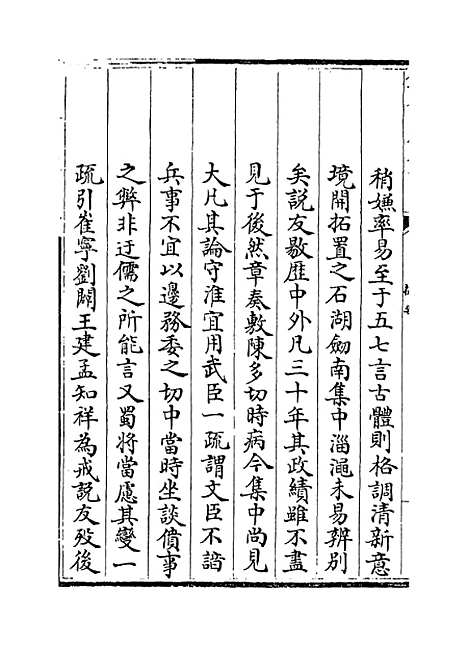 稍嫌率易至于五七言古體則格調清新意
境開拓置之石湖劒南集中淄澠未易辨别
矣説友敭歴中外凡三十年其政績雖不盡
見于後然章奏敷陳多切時病今集中尚見
大凡其論守淮宜用武臣一疏謂文臣不諳
兵事不宜以邊務委之切中當時坐談僨事
之弊非迂儒之所能言又蜀將當慮其變一
疏引崔寧劉闢王建孟知祥為戒説友殁後